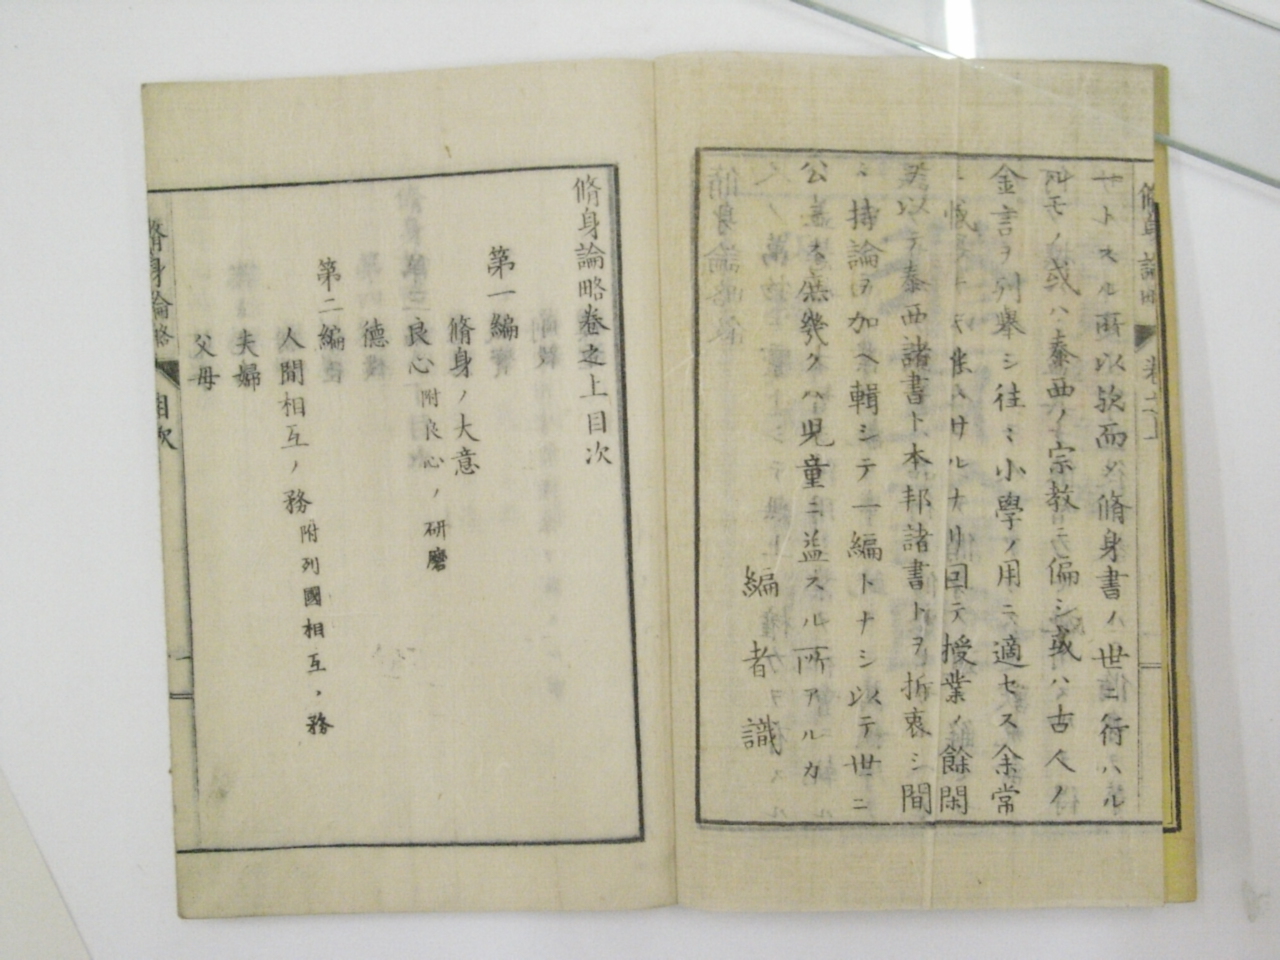 サトスル所以
而メ脩身書ハ世ニ行ハル
ルモノ或ハ泰西ノ宗教ニ偏シ或ハ古人ノ
金言ヲ列舉シ往〻小學ノ用ニ適セス余常
ニ
サルナリ因テ授業ノ餘閑
ヲ以テ泰西諸書ト本邦諸書トヲ折衷シ間
〻持論ヲ加ヘ輯シテ一編トナシ以テ世ニ
公ニス庶幾クハ児童ニ益スル所アルカ
編者識
脩身論略卷之上目次
第一編
脩身ノ大意
良心 附良心ノ研磨
德
第二編
人間相互ノ務 附列國相互ノ務
夫婦
父母
脩身論略 目次 一